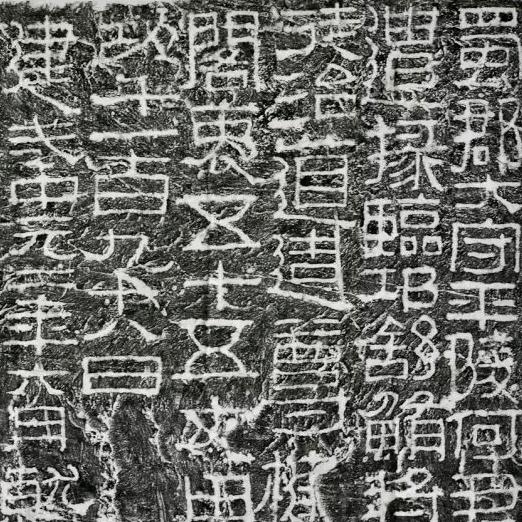 蜀郡大守平陵何君
遣掾臨邛舒鮪將
徒治道造尊楗
閣袤五十五丈用
功千一百九十八日
建武中元二年六月就